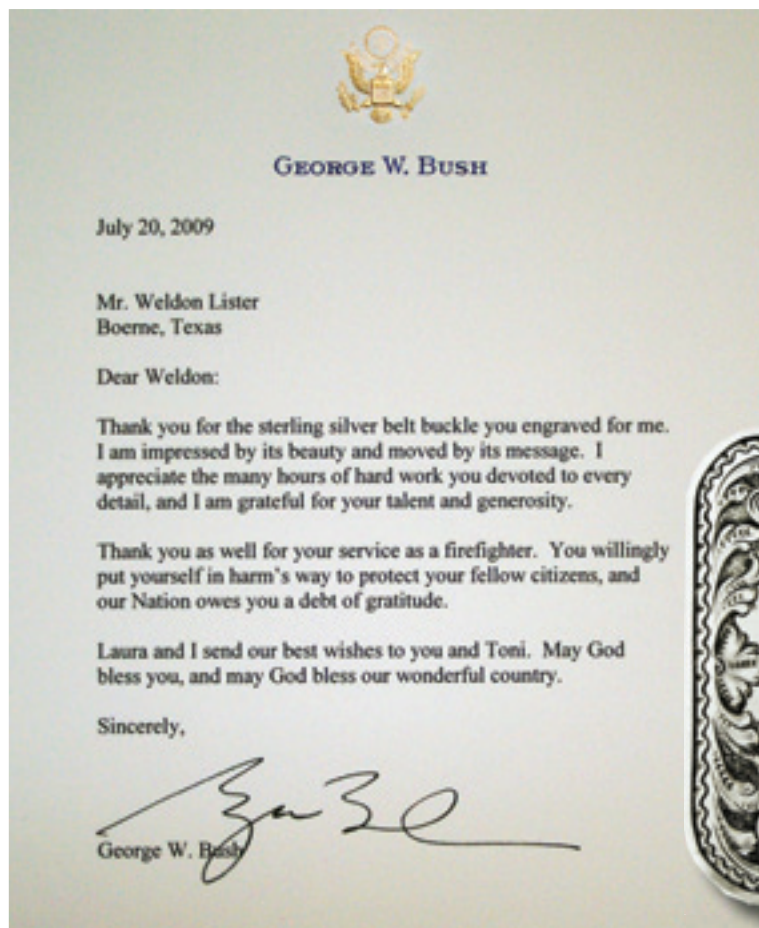 GEORGE W. BUSH
July 20, 2009
Mr. Weldon Lister
Boerne, Texas
Dear Weldon:
Thank you for the sterling silver belt buckle you engraved for me.
I am impressed by its beauty and moved by its message. I
appreciate the many hours of hard work you devoted to every
detail, and I am grateful for your talent and generosity.
Thank you as well for your service as a firefighter. You willingly
put yourself in harm's way to protect your fellow citizens, and
our Nation owes you a debt of gratitude.
Laura and I send our best wishes to you and Toni. May God
bless you, and may God bless our wonderful country.
Sincerely,
George W. Bush